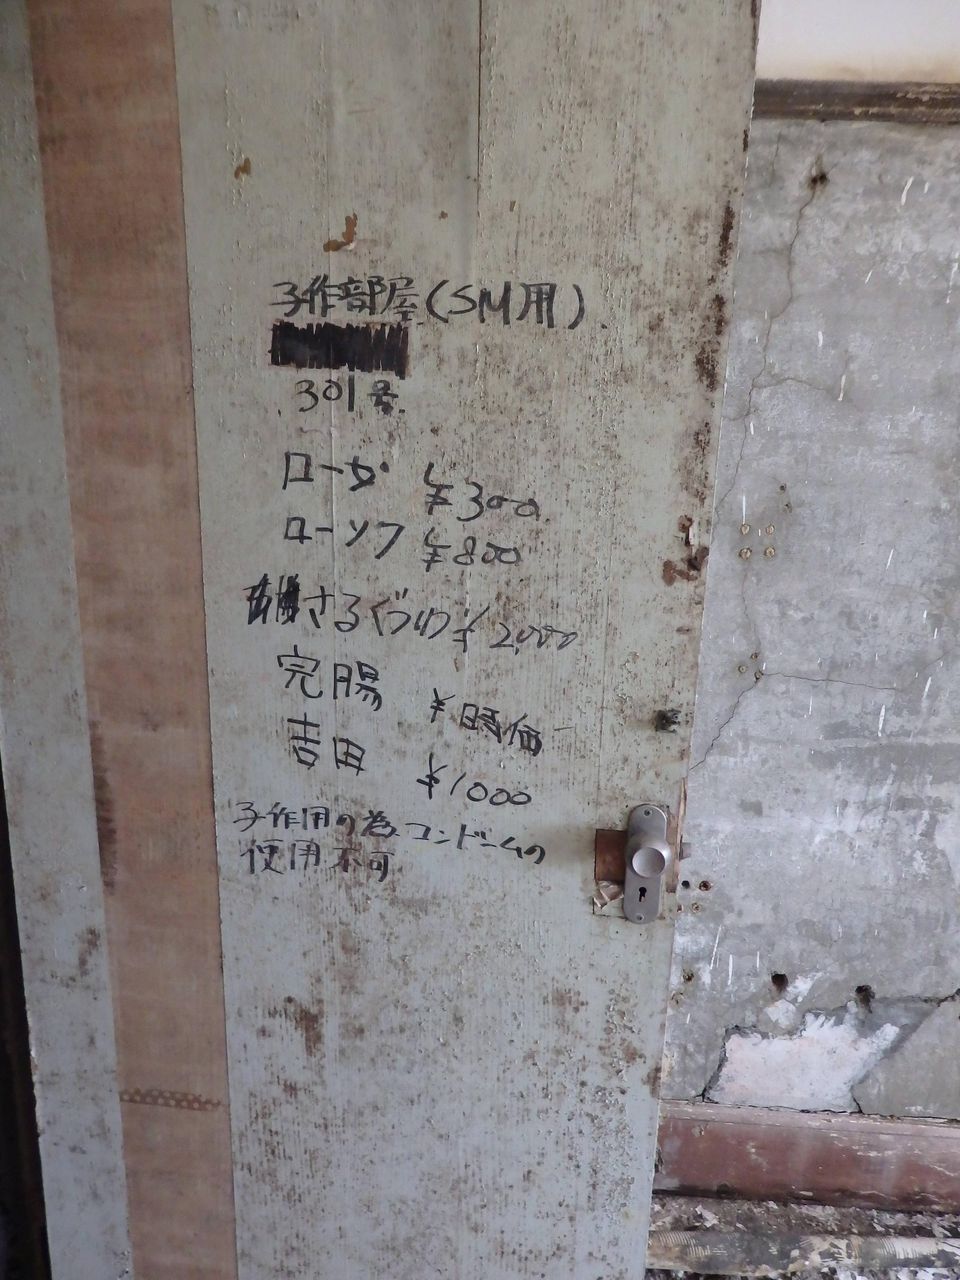 子作部屋(SM用)
301号
ローザ ¥300
ローソク ¥800
さるぐつわ ¥2,000
完腸 ¥時価
吉用 ¥1000
子作用の為コンドームの
使用不可